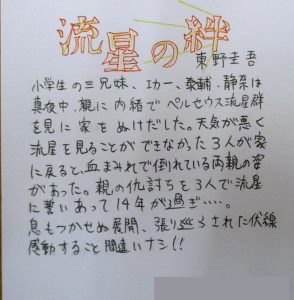 流星の絆
東野圭吾
小学生の三兄妹、功一、泰輔、静奈は
真夜中、親に内緒でペルセウス流星群
を見に家をぬけだした。天気が悪く
流星を見ることができなかった3人が家
に戻ると、血まみれで倒れている両親の姿
があった。親の仇討ちを3人で流星
に誓いあって14年が過ぎ‥‥。
息もつかせぬ展開、張り巡らされた伏線
感動すること間違いナシ!!